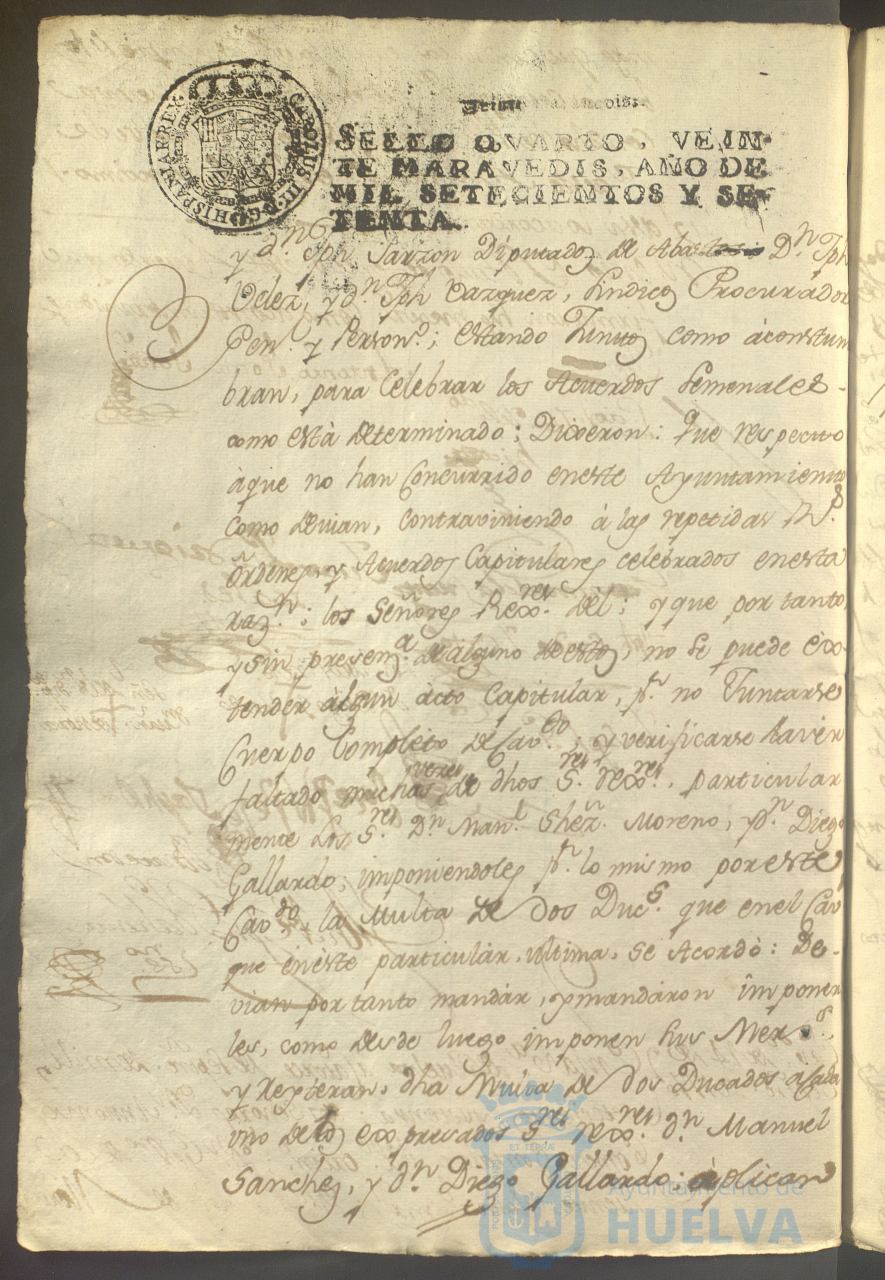 CAROLUS III D G HISPANIAR REX
SELLO QVARTO, VEIN-
TE MARAVEDIS, AÑO DE
MIL SETECIENTOS Y SE-
TENTA.
y dn Jph Garzon Diputados de Abastos Dn Jph
Velez, y dn Jph Vazquez, Sindicos Procurador
Genl y Persono; estando Juntos como acostum
bran, para Celebrar los Acuerdos Semenales-
como està determinado; Dixeron: que respecto
àque no han Concurrido eneste Ayuntamiento
como devian, contraviniendo à las repetidas Rs
Òrdenes, y Acuerdos Capitulares celebrados enesta
razn; los Señores Rexores dèl; y que por tanto,
y sin presenza de alguno de estos, no se puede èx-
tender àlgun àcto Capitular, pr no Juntarse
Cuerpo Completo de Cavdo; y verificarse haver
faltado muchas veces dhos Sres rexores, particular
mente los Sres Dn Manl Shez Moreno, y dn Diego
Gallardo; imponiendoles pr lo mismo poreste
Cavdo, la Multa de dos Ducs que enel Cavo
que enèste particular, ultima, se Acordò: De-
vian por tanto mandar, y mandaron imponer
les, como desde luego imponen sus Mers,
y dha Multa de dos Ducados acada
uno delos expresados Sres rexores dn Manuel
Sanchez, y dn Diego Gallardo; àplican
Ayuntamiento de
HUELVA